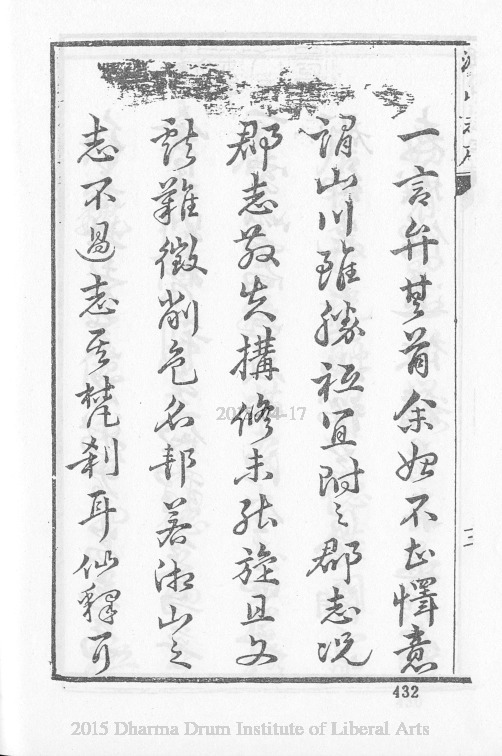 一言弁其首余始不甚懌意
謂山川雖勝祗宜附之郡志况
郡志散失搆修未能旋且文
獻難徵削色名邦若湘山之
志不過志其梵刹耳仙釋可
三
432
2015 Dharma Drum Institute of Liberal Arts